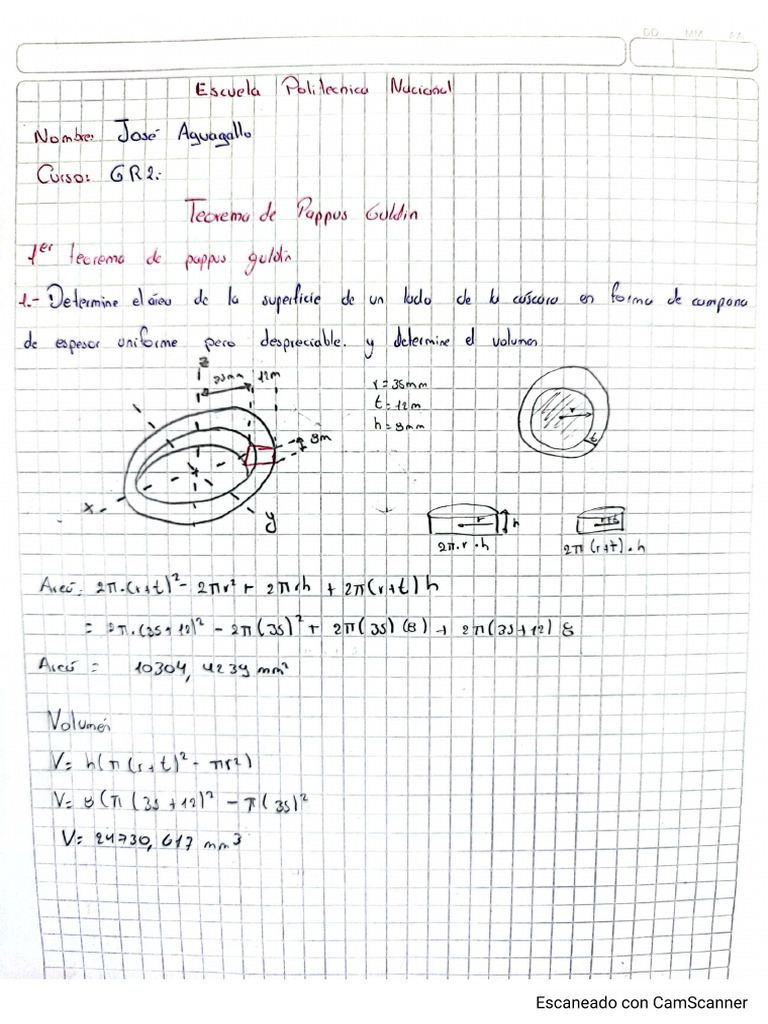 DD MM AA
Escuela Politecnica Nacional
Nombre: José Aguagallo
Curso: GR2:
Teorema de Pappus Guldin
1er teorema de pappus guldin
1.- Determine el área de la superficie de un lado de la cáscara en forma de campana
de espesor uniforme pero despreciable. y determine el volumen
z
35mm 12m
8m
x
y
r = 35mm
t = 12m
h = 8mm
r
t
r h
2π·r·h
r+t
2π(r+t)·h
Area: 2π·(r+t)² - 2πr² + 2πrh + 2π(r+t)h
= 2π·(35+12)² - 2π(35)² + 2π(35)(8) + 2π(35+12)8
Area = 10304,4239 mm²
Volumen
V= h(π(r+t)² - πr²)
V= 8(π(35+12)² - π(35)²
V= 24730,617 mm³
Escaneado con CamScanner